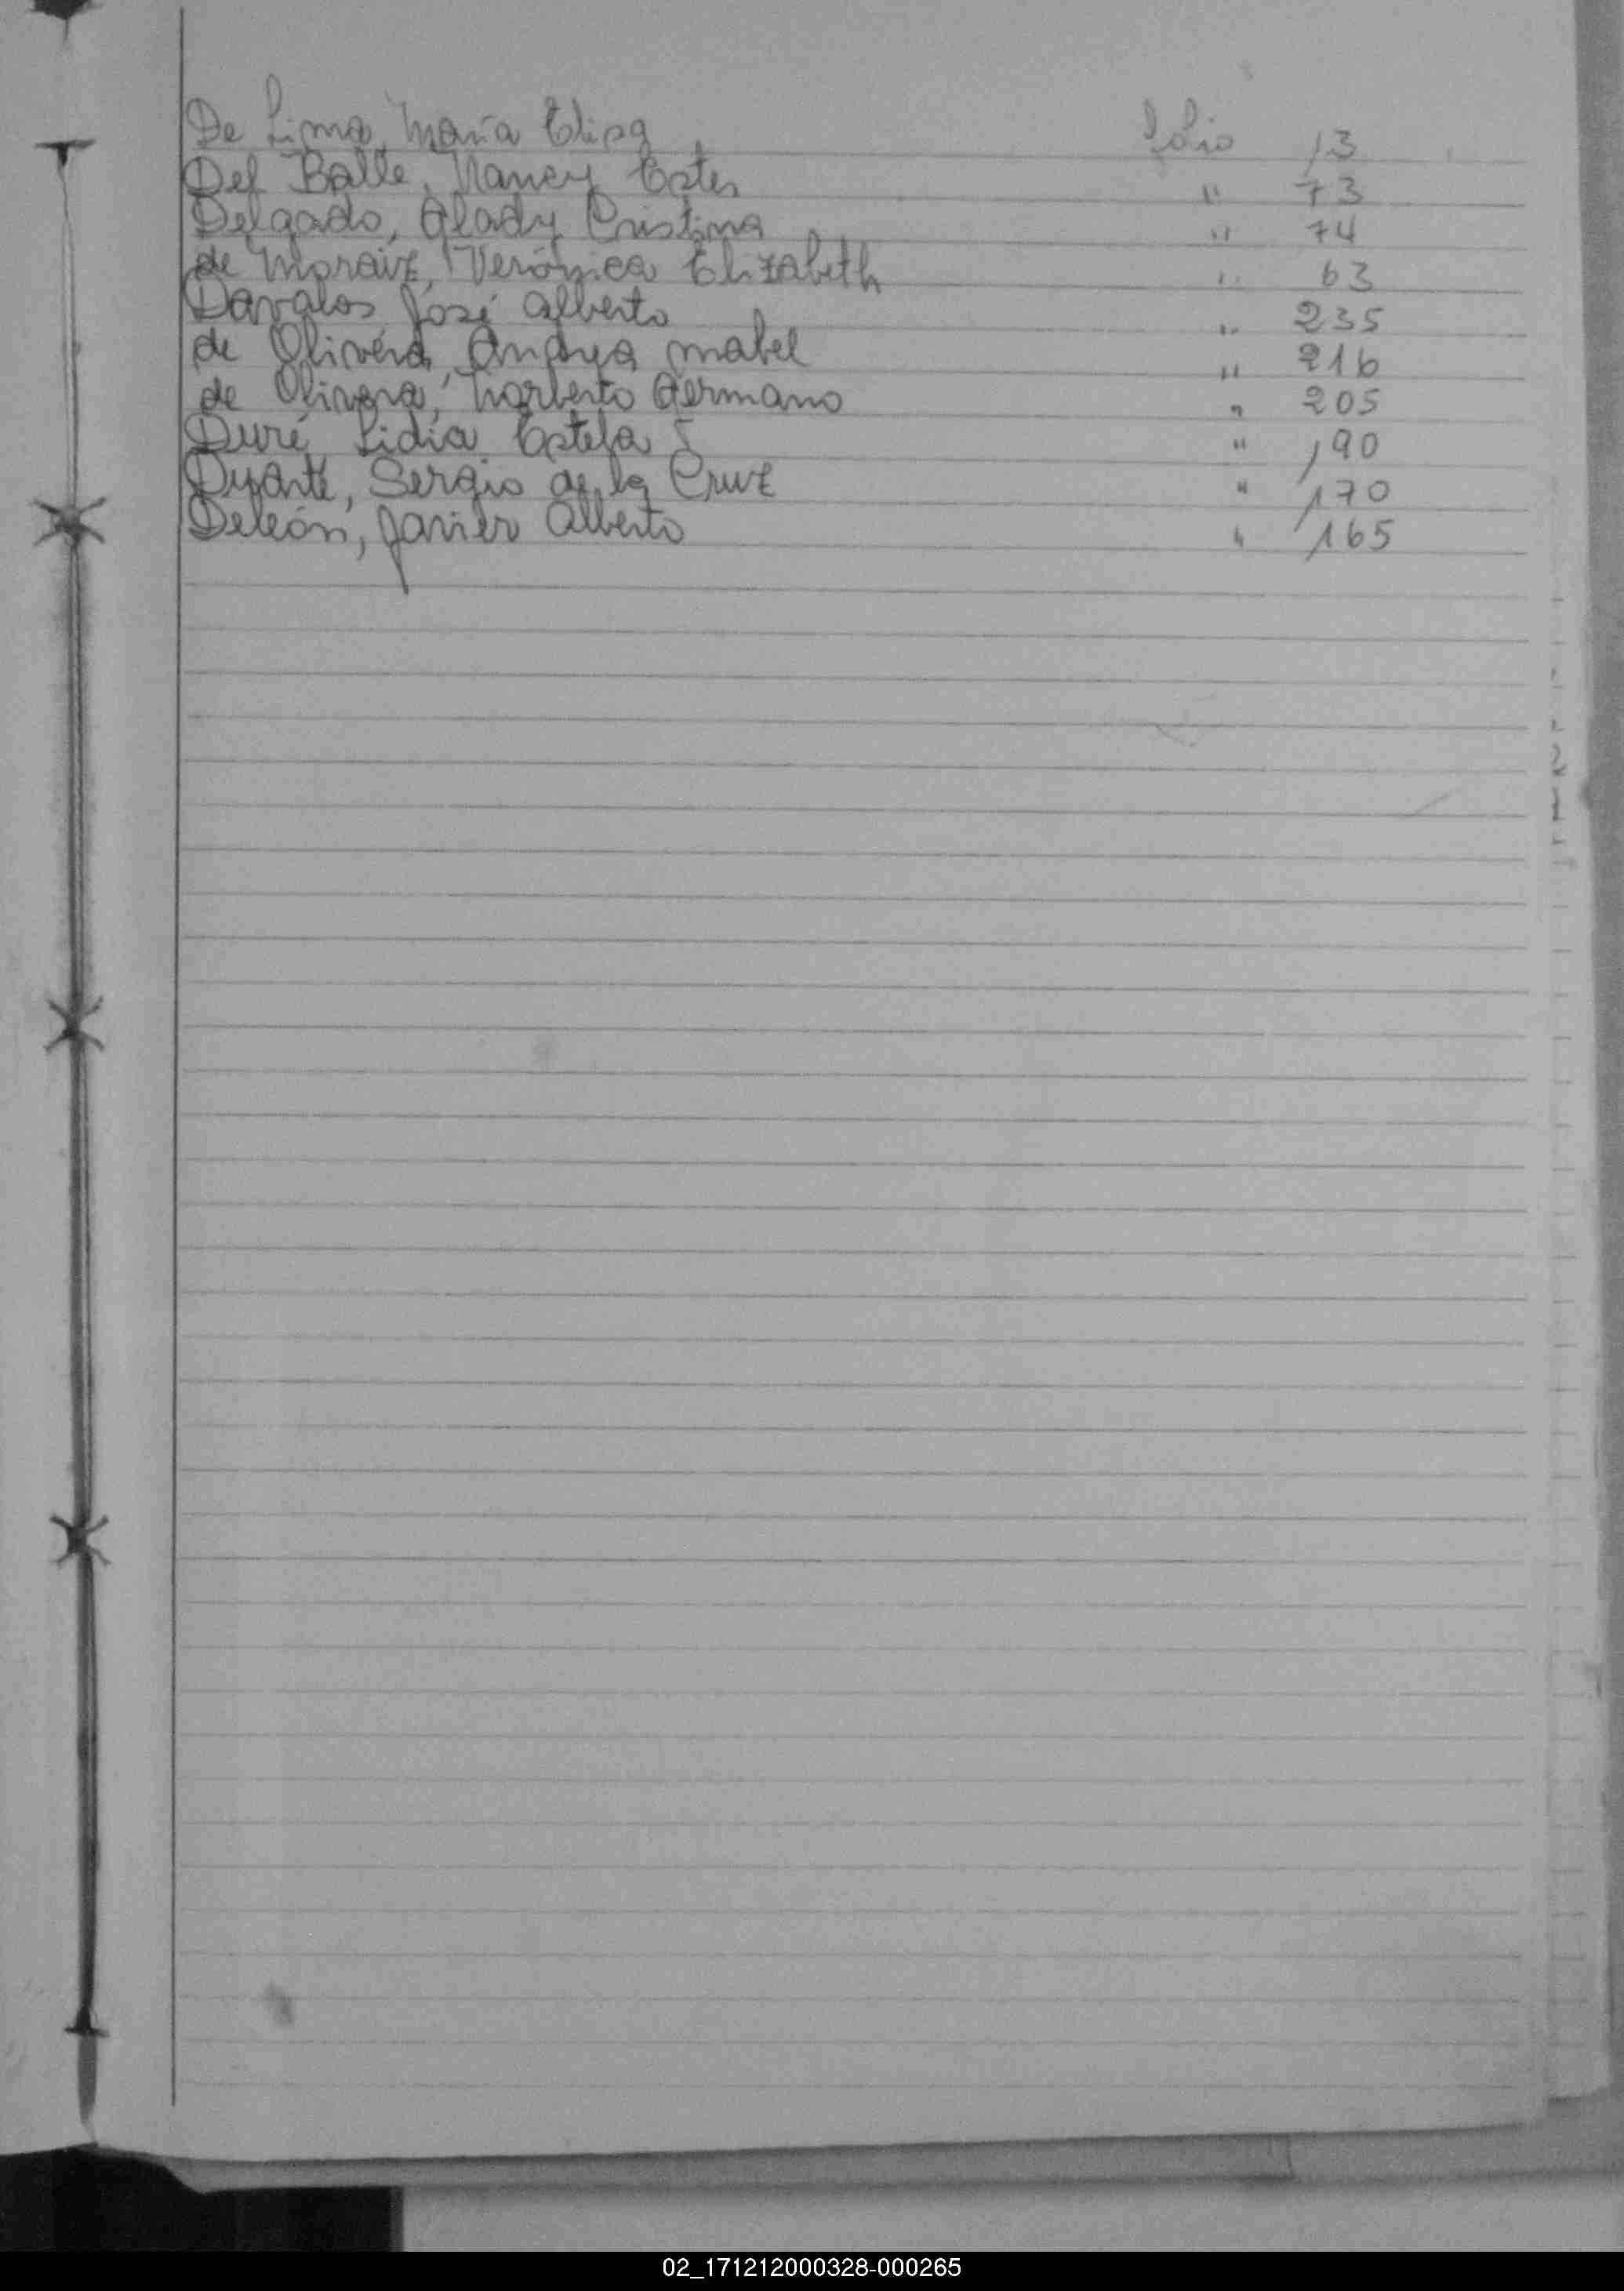 De Lima, María Elisa folio 13
Del Balle, Nancy Ester " 73
Delgado, Glady Cristina " 74
de Moraiz, Verónica Elizabeth " 63
Davalos José Alberto " 235
de Olivera, Andrea mabel " 216
de Olivera, Norberto Germano " 205
Duré Lidia Estela " 190
Duarte, Sergio de la Cruz " 170
Deleón, Javier Alberto " 165
02_171212000328-000265